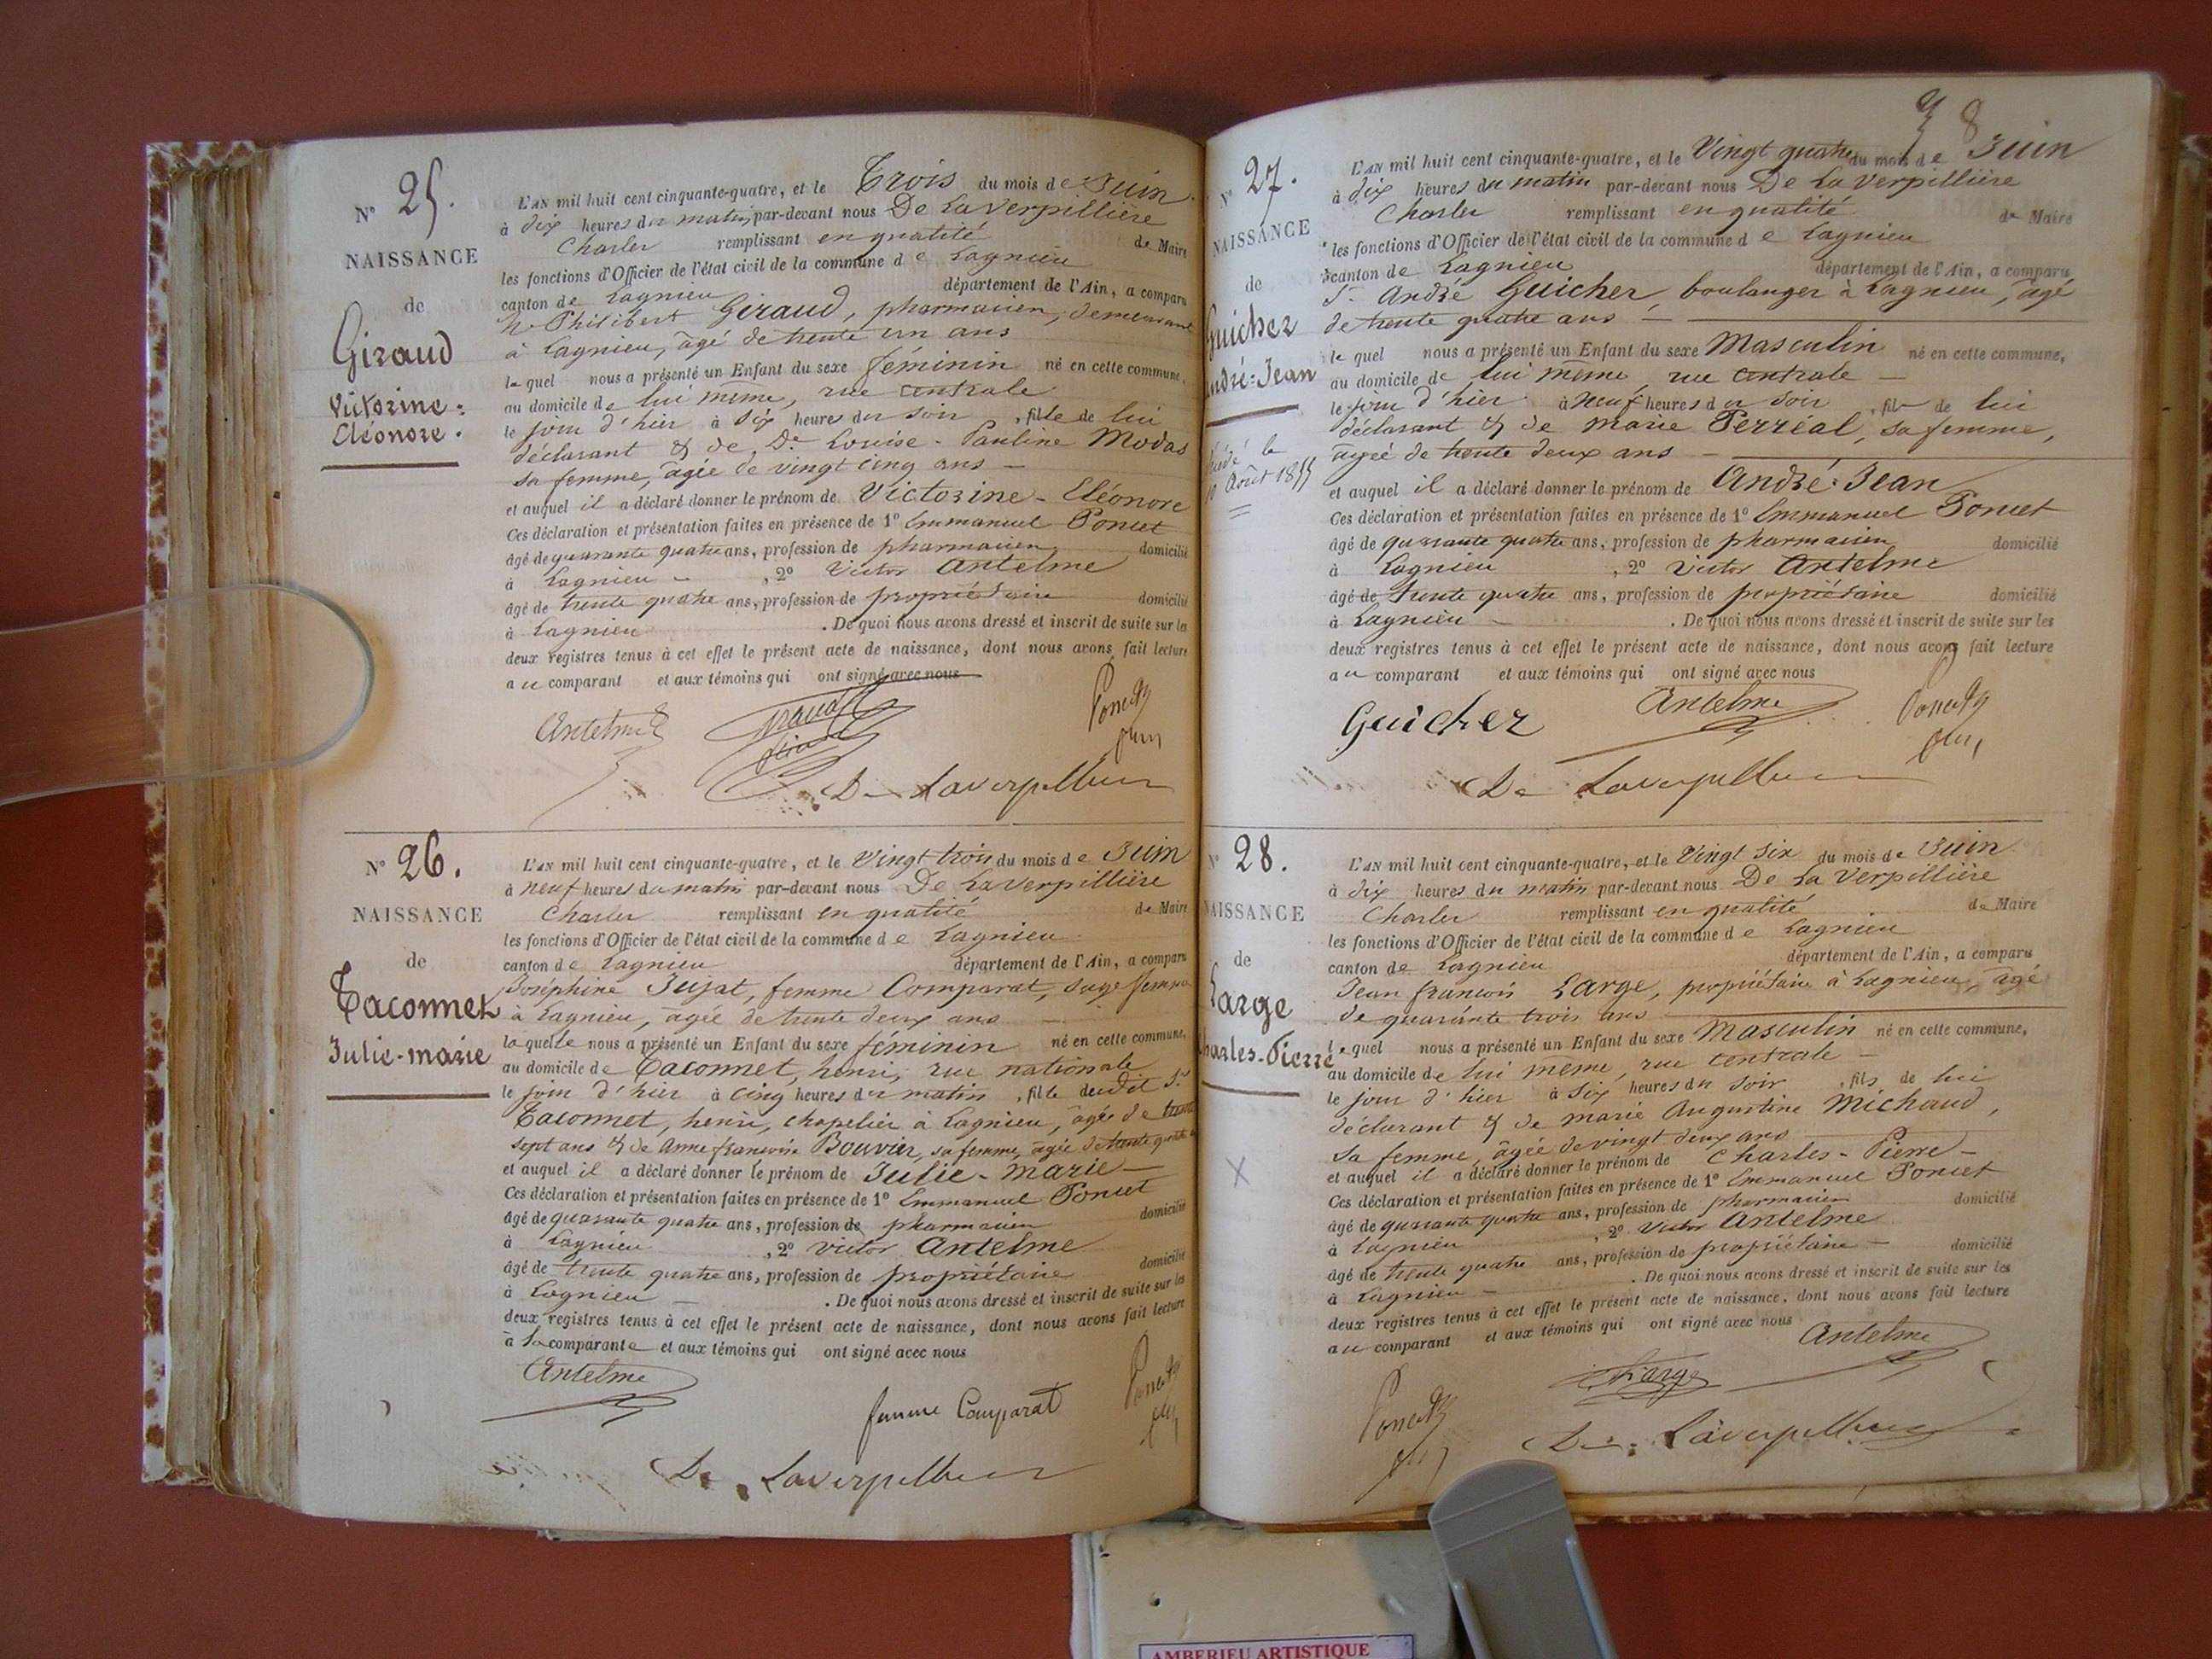 N° 25.
NAISSANCE
de
Giraud
Victorine-
Eléonore.
L'AN mil huit cent cinquante-quatre, et le Trois du mois de Juin
à dix heures du matin, par-devant nous De La Verpillière
Charles remplissant en qualité de Maire
les fonctions d'Officier de l'état civil de la commune de Lagnieu
canton de Lagnieu département de l'Ain, a comparu
Mr Philibert Giraud, pharmacien, demeurant
à Lagnieu, âgé de trente un ans
lequel nous a présenté un Enfant du sexe féminin né en cette commune,
au domicile de lui même, rue centrale
le jour d'hier à dix heures du soir, fille de lui
déclarant & de De Louise-Pauline Modas
sa femme, âgée de vingt cinq ans —
et auquel il a déclaré donner le prénom de Victorine-Eléonore
Ces déclaration et présentation faites en présence de 1° Emmanuel Poncet
âgé de quarante quatre ans, profession de pharmacien domicilié
à Lagnieu —, 2° Victor Antelme
âgé de trente quatre ans, profession de propriétaire domicilié
à Lagnieu . De quoi nous avons dressé et inscrit de suite sur les
deux registres tenus à cet effet le présent acte de naissance, dont nous avons fait lecture
au comparant et aux témoins qui ont signé avec nous
Antelme Giraud Poncet
De Laverpilliere
N° 26.
NAISSANCE
de
Taconnet
Julie-marie
L'AN mil huit cent cinquante-quatre, et le Vingt trois du mois de Juin
à neuf heures du matin par-devant nous De La Verpillière
Charles remplissant en qualité de Maire
les fonctions d'Officier de l'état civil de la commune de Lagnieu
canton de Lagnieu département de l'Ain, a comparu
Joséphine Jujat, femme Comparat, sage femme
à Lagnieu, âgée de trente deux ans —
laquelle nous a présenté un Enfant du sexe féminin né en cette commune,
au domicile de Taconnet, henri, rue nationale
le jour d'hier à cinq heures du matin, fille dudit Sr
Taconnet, henri, chapelier à Lagnieu, âgé de trente
sept ans & de Anne françoise Bouvier, sa femme, âgée de trente quatre
et auquel il a déclaré donner le prénom de Julie-Marie —
Ces déclaration et présentation faites en présence de 1° Emmanuel Poncet
âgé de quarante quatre ans, profession de pharmacien domicilié
à Lagnieu, 2° Victor Antelme
âgé de trente quatre ans, profession de propriétaire domicilié
à Lagnieu — . De quoi nous avons dressé et inscrit de suite sur les
deux registres tenus à cet effet le présent acte de naissance, dont nous avons fait lecture
à la comparante et aux témoins qui ont signé avec nous
Antelme femme Comparat Poncet
De Laverpilliere
8
N° 27.
NAISSANCE
de
Guicher
André-Jean
décédé le
août 1855
L'AN mil huit cent cinquante-quatre, et le Vingt quatre du mois de Juin
à dix heures du matin par-devant nous De La Verpillière
Charles remplissant en qualité de Maire
les fonctions d'Officier de l'état civil de la commune de Lagnieu
canton de Lagnieu département de l'Ain, a comparu
Sr André Guicher, boulanger à Lagnieu, âgé
de trente quatre ans —
lequel nous a présenté un Enfant du sexe Masculin né en cette commune,
au domicile de lui même, rue centrale —
le jour d'hier à neuf heures du soir, fils de lui
déclarant & de Marie Perréal, sa femme,
agée de trente deux ans —
et auquel il a déclaré donner le prénom de André-Jean
Ces déclaration et présentation faites en présence de 1° Emmanuel Poncet
âgé de quarante quatre ans, profession de pharmacien domicilié
à Lagnieu, 2° Victor Antelme
âgé de trente quatre ans, profession de propriétaire domicilié
à Lagnieu — . De quoi nous avons dressé et inscrit de suite sur les
deux registres tenus à cet effet le présent acte de naissance, dont nous avons fait lecture
au comparant et aux témoins qui ont signé avec nous
Guicher Antelme Poncet
De Laverpilliere
N° 28.
NAISSANCE
de
Large
Charles-Pierre
L'AN mil huit cent cinquante-quatre, et le Vingt six du mois de Juin
à dix heures du matin par-devant nous De La Verpillière
Charles remplissant en qualité de Maire
les fonctions d'Officier de l'état civil de la commune de Lagnieu
canton de Lagnieu département de l'Ain, a comparu
Jean françois Large, propriétaire à Lagnieu, âgé
de quarante trois ans
lequel nous a présenté un Enfant du sexe Masculin né en cette commune,
au domicile de lui même, rue centrale —
le jour d'hier à six heures du soir, fils de lui
déclarant & de marie Augustine Michaud,
sa femme, âgée de vingt deux ans
et auquel il a déclaré donner le prénom de Charles-Pierre —
Ces déclaration et présentation faites en présence de 1° Emmanuel Poncet
âgé de quarante quatre ans, profession de pharmacien domicilié
à Lagnieu, 2° Victor Antelme
âgé de trente quatre ans, profession de propriétaire — domicilié
à Lagnieu — . De quoi nous avons dressé et inscrit de suite sur les
deux registres tenus à cet effet le présent acte de naissance, dont nous avons fait lecture
au comparant et aux témoins qui ont signé avec nous
Antelme
Poncet Large
De Laverpilliere
AMBERIEU ARTISTIQUE